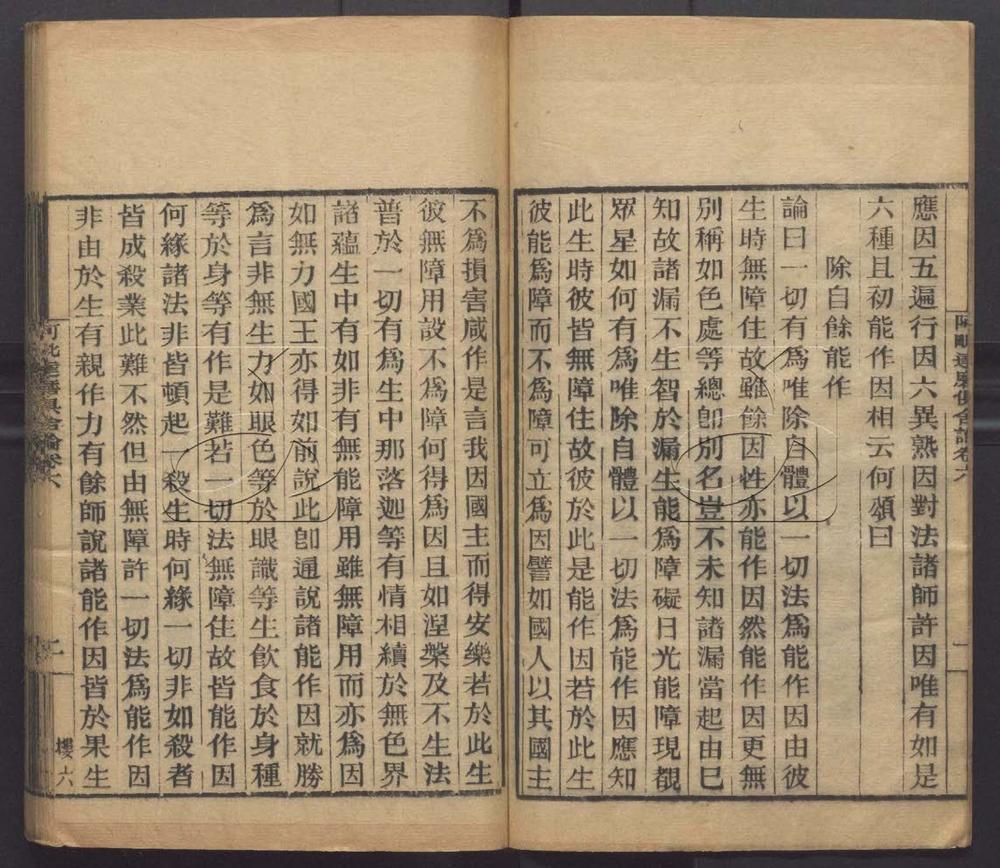 應因五遍行因六異熟因對法諸師許因唯有如是
六種且初能作因相云何頌曰
除自餘能作
論曰一切有爲唯除自體以一切法爲能作因由彼
生時無障住故雖餘因性亦能作因然能作因更無
別稱如色處等總卽別名豈不未知諸漏當起由已
知故諸漏不生智於漏生能爲障礙日光能障現覩
眾星如何有爲唯除自體以一切法爲能作因應知
此生時彼皆無障住故彼於此是能作因若於此生
彼能爲障而不爲障可立爲因譬如國人以其國主
阿毗達磨俱舍論卷六
一
不爲損害咸作是言我因國主而得安樂若於此生
彼無障用設不爲障何得爲因且如涅槃及不生法
普於一切有爲生中那落迦等有情相續於無色界
諸蘊生中有如非有無能障用雖無障用而亦爲因
如無力國王亦得如前說此卽通說諸能作因就勝
爲言非無生力如眼色等於眼識等生飲食於身種
等於身等有作是難若一切法無障住故皆能作因
何緣諸法非皆頓起一殺生時何緣一切非如殺者
皆成殺業此難不然但由無障許一切法爲能作因
非由於生有親作力有餘師說諸能作因皆於果生
阿毗達磨俱舍論卷六
二
櫻六